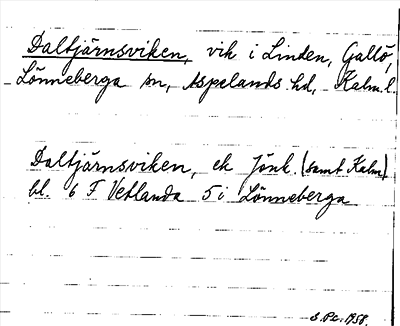 Daltjärnsviken, vik i Linden, Gallö,
Lönneberga sn, Aspelands hd, Kalm. l.
Daltjärnsviken, ek Jönk. (samt Kalm)
bl. 6 F Vetlanda 5 i Lönneberga
S. Pe. 1958.